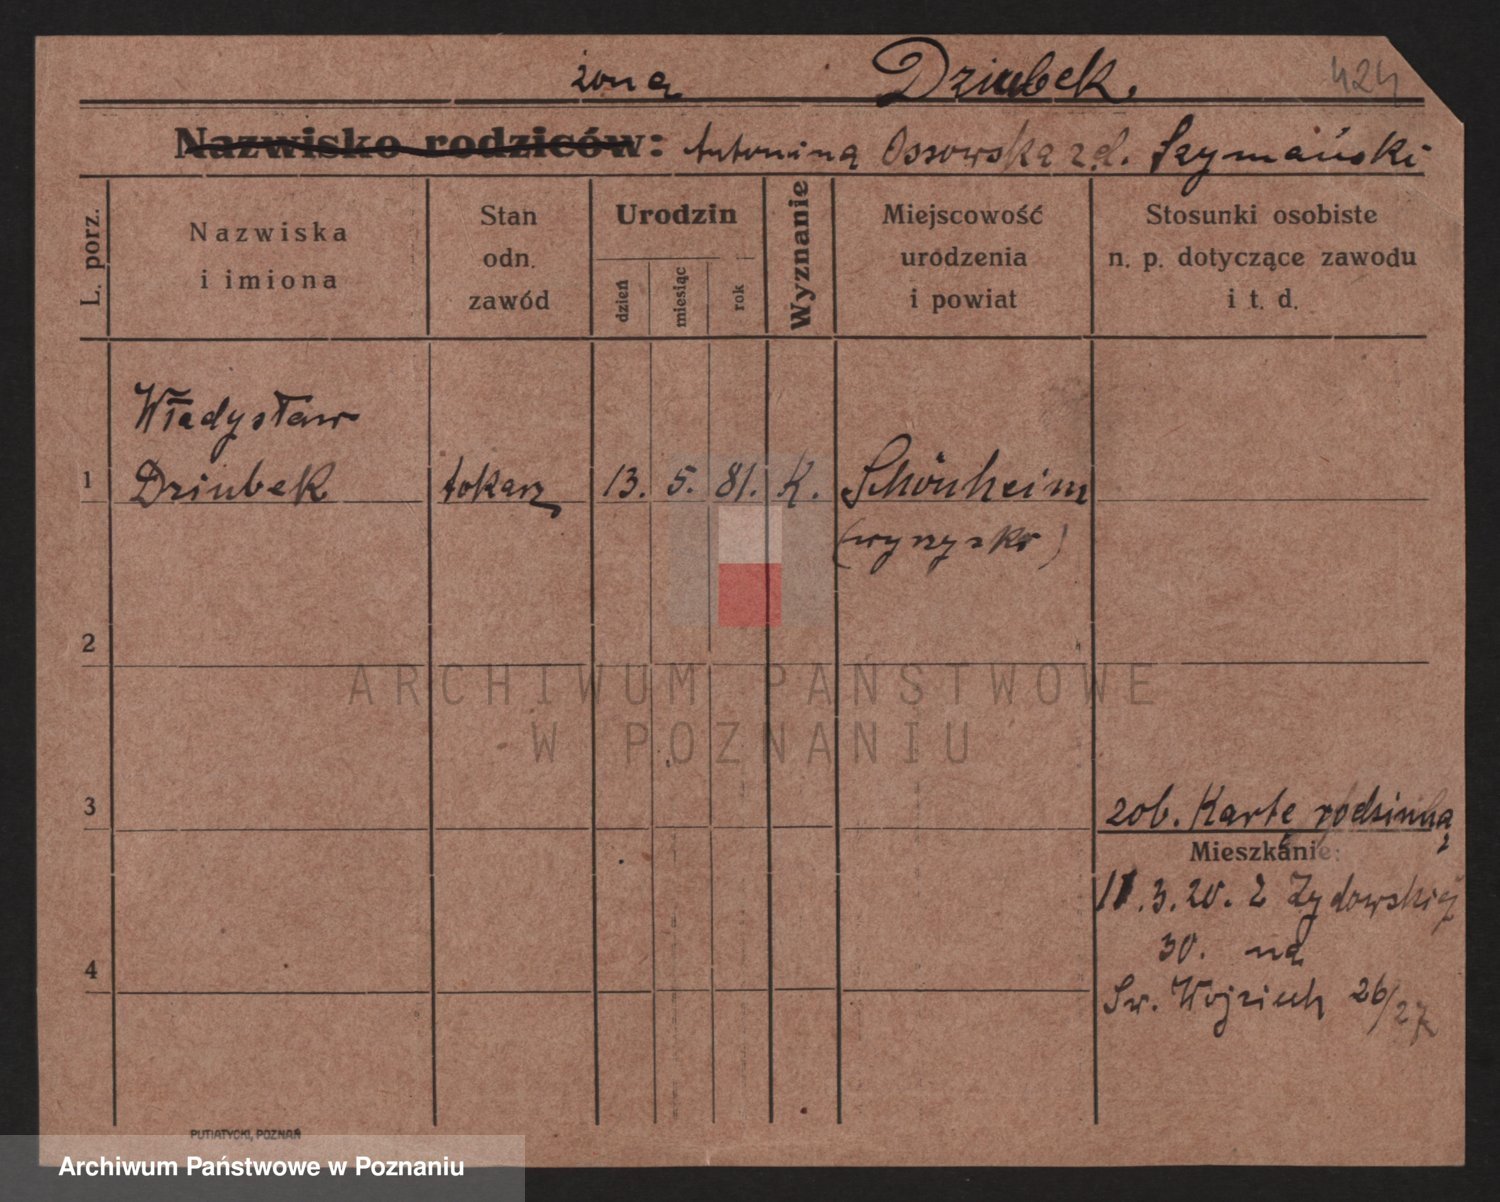 żona Dziubek. 424
Nazwisko rodziców: Antonina Ossowska z d. Szymański
L. porz.
Nazwiska
i imiona
Stan
odn.
zawód
Urodzin
dzień
miesiąc
rok
Wyznanie
Miejscowość
urodzenia
i powiat
Stosunki osobiste
n. p. dotyczące zawodu
i t. d.
Władysław
1 Dziubek tokarz 13. 5. 81. K. Schönheim
(wyrzysk)
2
ARCHIWUM PAŃSTWOWE
W POZNANIU
3 zob. Kartę rodzinną
Mieszkanie:
11.3.20. z Żydowskiej
30. na
4
Św. Wojciech 26/27
PUTIATYCKI, POZNAŃ
Archiwum Państwowe w Poznaniu